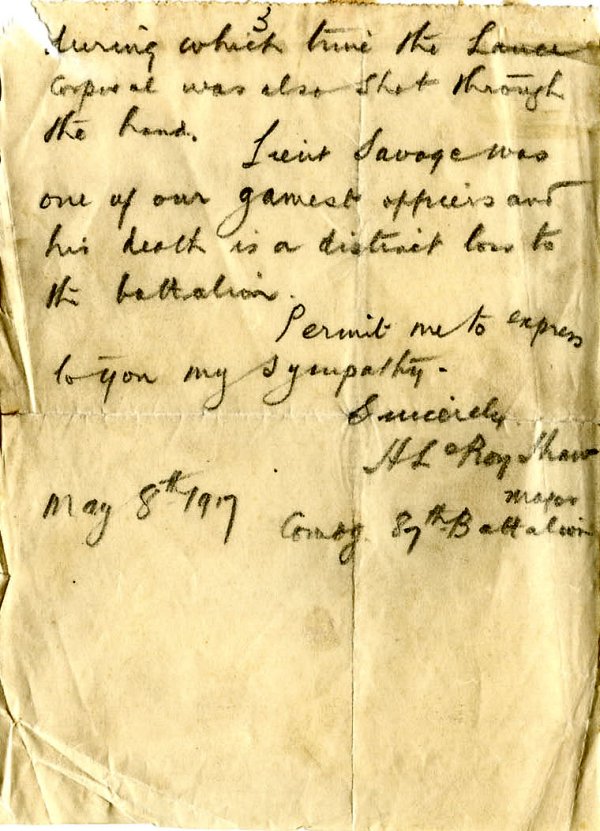 3
during which time the Lance
Corporal was also shot through
the hand.
Lieut Savage was
one of our gamest officers and
his death is a distinct loss to
the battalion.
Permit me to express
to you my sympathy.
Sincerely
H LeRoy Shaw
Major
May 8th 1917
Comdg. 87th Battalion